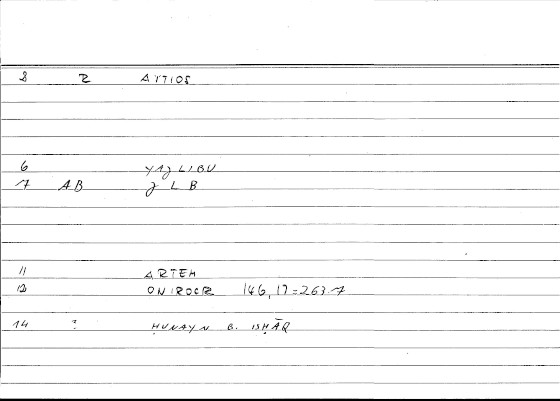 2 R AYTIOS
6 YAJLIBU
7 AB J L B
11 ARTEM
12 ONIROCR 146,17=263.7
14 ? ḤUNAYN B. ISḤĀQ